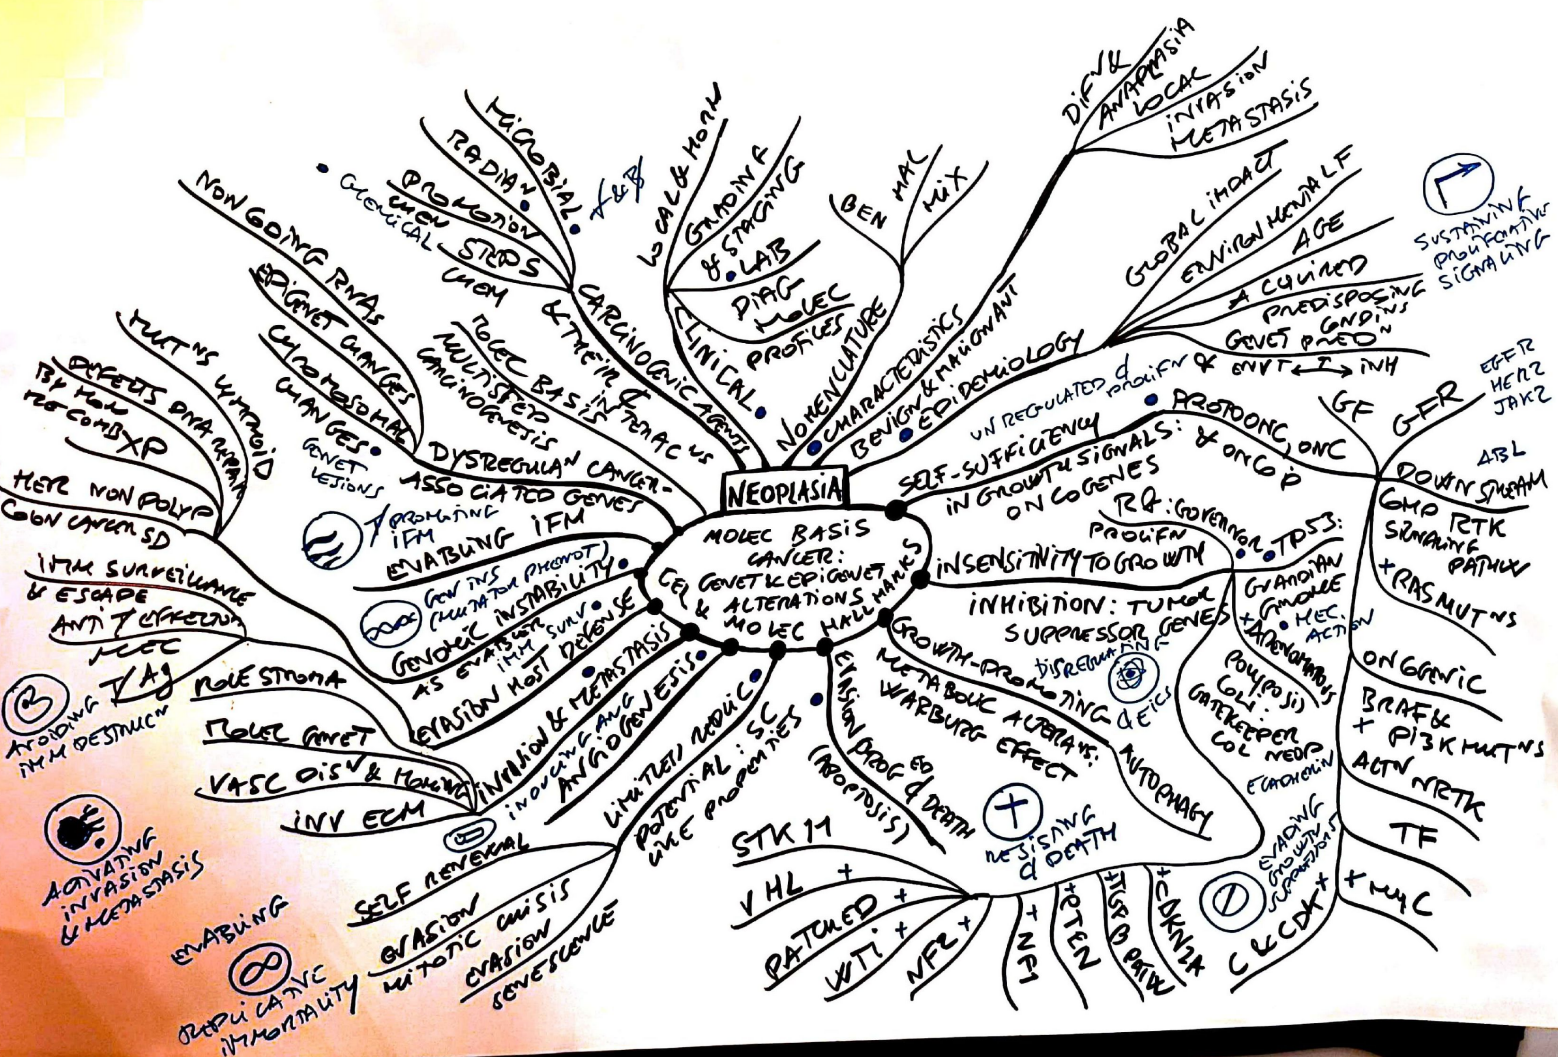 NEOPLASIA
MOLEC BASIS
CANCER:
GENET & EPIGENET
ALTERATIONS
& MOLEC HALLMARKS
NOMENCLATURE
BEN
MAL
MIX
CHARACTERISTICS
BENIGN & MALIGNANT
ANAPLASIA
LOCAL
INVASION
METASTASIS
EPIDEMIOLOGY
GLOBAL IMPACT
ENVIRONMENTAL F
AGE
ACQUIRED
PREDISPOSING
ENVT ↔ INH
SELF-SUFFICIENCY
IN GROWTH SIGNALS:
ONCOGENES
UNREGULATED
PROTOONC, ONC
& ONCOP
GF
GFR
EGFR
HER2
JAK2
DOWNSTREAM
ABL
RTK
SIGNALING
PATHW
+RAS MUTNS
ONCOGENIC
BRAF &
+ PI3K MUTNS
ALTN NRTK
TF
+ MYC
SUSTAINING
PROLIFERATIVE
SIGNALING
INSENSITIVITY TO GROWTH
INHIBITION: TUMOR
SUPPRESSOR GENES
GOVERNOR
PROLIFN
TP53:
GUARDIAN
GENOME
MEC
ACTION
POLYPOSIS
COLI:
GATEKEEPER
COL NEOP
EVADING
GROWTH
SUPPRESSORS
+CDKN2A
+TGF B PATHW
+PTEN
+NF1
NF2
+
WT1
+
PATCHED
+
VHL
+
STK 11
GROWTH-PROMOTING
METABOLIC ALTERATNS:
WARBURG EFFECT
AUTOPHAGY
EVASION PROG
DEATH
(APOPTOSIS)
RESISTING
DEATH
LIMITLESS REPLIC
POTENTIAL: SC
LIKE PROPERTIES
SELF RENEWAL
EVASION
MITOTIC CRISIS
EVASION
SENESCENCE
ENABLING
REPLICATIVE
IMMORTALITY
ANGIOGENESIS
INDUCING ANG
INVASION & METASTASIS
ROLE STROMA
MOLEC GENET
VASC DISN & HOMING
INV ECM
ACTIVATING
INVASION
& METASTASIS
EVASION HOST DEFENSE
IMM SURV
IMM SURVEILLANCE
& ESCAPE
ANTI T EFFECTOR
MEC
T Ag
AVOIDING
IMM DESTRUCN
GENOMIC INSTABILITY
AS ENABLER
GEN INS
(MUTATOR PHENOT)
HER NON POLYP
COLON CANCER SD
XP
DEFECTS DNA REPAIR
BY HOM
RECOMB
MUTNS LYMPHOID
ENABLING IFM
T PROMOTING
IFM
DYSREGULAN CANCER-
ASSOCIATED GENES
CHROMOSOMAL
CHANGES
EPIGENET CHANGES
NONCODING RNAS
GENET
LESIONS
MOLEC BASIS
MULTISTEP
CARCINOGENESIS
CARCINOGENIC AGENTS
& THEIR
MICROBIAL
RADIAN
PROMOTION
CHEM
STEPS
CHEM
CHEMICAL
CLINICAL
LOCAL & HORM
GRADING
& STAGING
LAB
DIAG
MOLEC
PROFILES